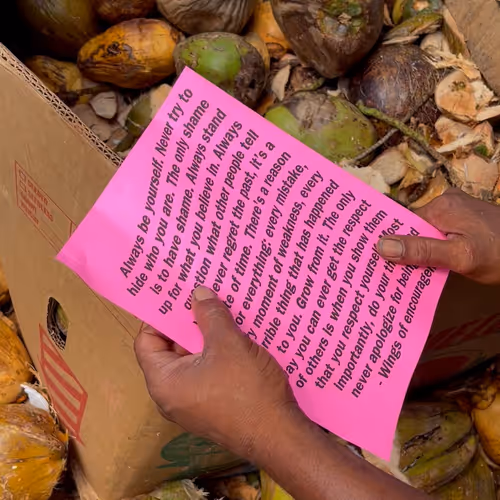 Always be yourself. Never try to
hide who you are. The only shame
is to have shame. Always stand
up for what you believe in. Always
what other people tell
regret the past. It's a
of time. There's a reason
for everything: every mistake,
moment of weakness, every
thing that has happened
to you. Grow from it. The only
you can ever get the respect
of others is when you show them
that you respect
importantly, do your
never apologize for
- Wings of